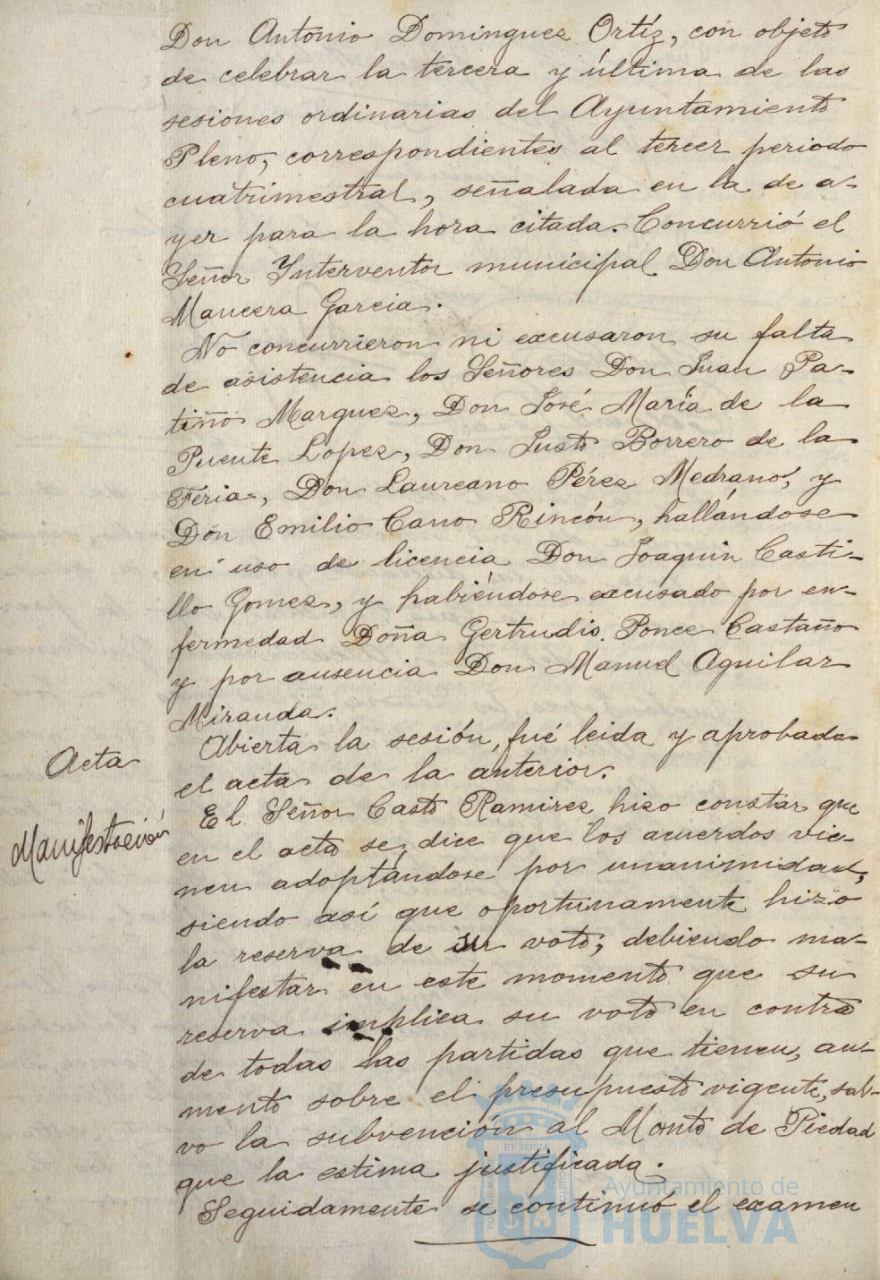 Don Antonio Dominguez Ortíz, con objeto
de celebrar la tercera y última de las
sesiones ordinarias del Ayuntamiento
Pleno, correspondientes al tercer periodo
cuatrimestral, señalada en la de a-
yer para la hora citada. Concurrió el
Señor Interventor municipal Don Antonio
Mancera Garcia.
No concurrieron ni excusaron su falta
de asistencia los Señores Don Juan Pa-
tiño Marquez, Don José María de la
Puente Lopez, Don Justo Borrero de la
Feria, Don Laureano Pérez Medrano, y
Don Emilio Cano Rincón, hallándose
en uso de licencia Don Joaquin Casti-
llo Gomez, y habiéndose excusado por en-
fermedad Doña Gertrudis Ponce Castaño
y por ausencia Don Manuel Aguilar
Miranda.
Acta
Abierta la sesión, fué leida y aprobada
el acta de la anterior.
Manifestación
El Señor Casto Ramirez hizo constar que
en el acto se dice que los acuerdos vie-
nen adoptándose por unanimidad,
siendo así que oportunamente hizo
la reserva de su voto, debiendo ma-
nifestar en este momento que su
reserva implica su voto en contra
de todas las partidas que tienen au-
mento sobre el presupuesto vigente, sal-
vo la subvención al Monte de Piedad
que la estima justificada.
Seguidamente se continuó el examen
Ayuntamiento de
HUELVA